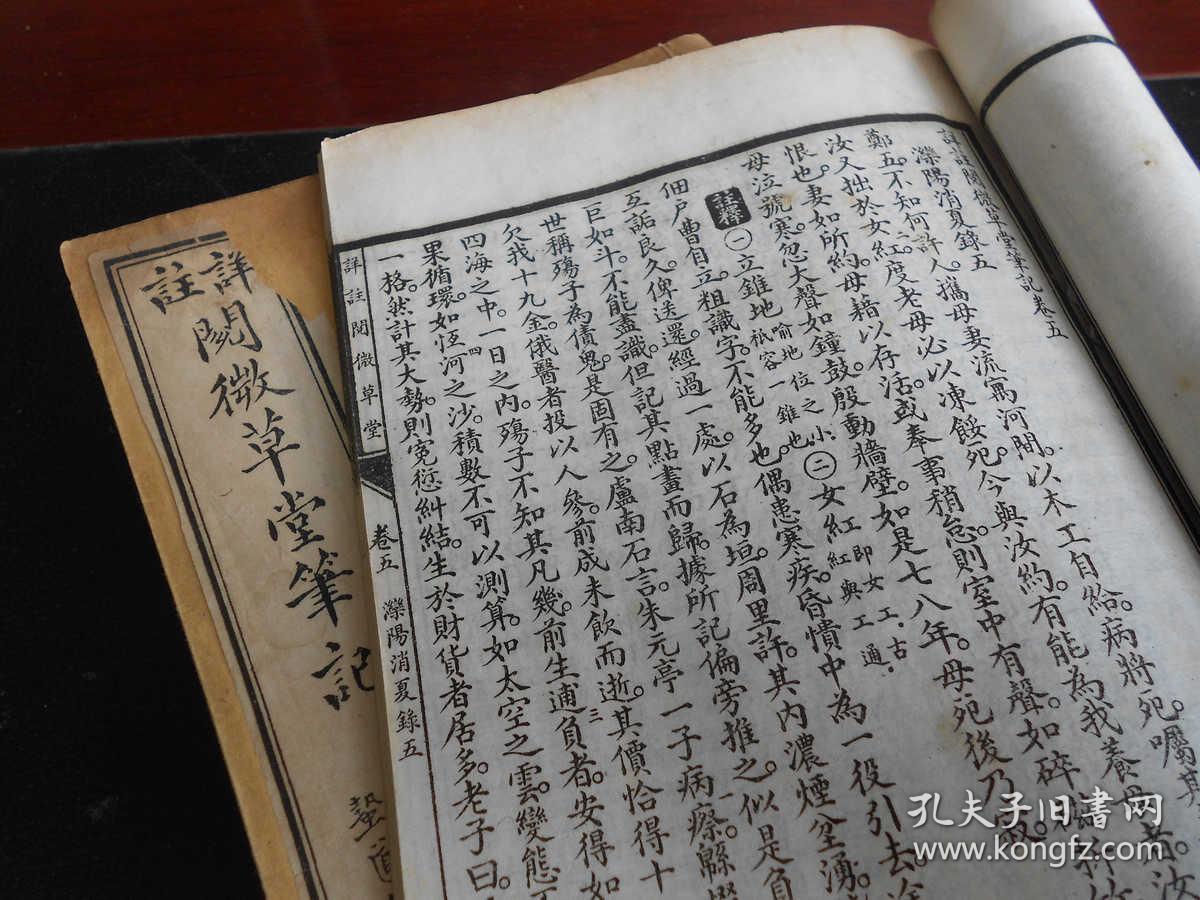 詳註閱微草堂筆記卷五
灤陽消夏錄五
鄭五不知何許人。攜母妻流寓河間。以木工自給。病將死。囑其
汝又拙於女紅。度老母必以凍餒死。今與汝約。有能為我養母
恨也。妻如所約。母藉以存活。或奉事稍怠。則室中有聲。如碎
母泣號寒。忽大聲如鐘鼓。殷動牆壁。如是七八年。母死後乃寂。
註釋 ㊀立錐地 喻地位之小。祇容一錐也。㊁女紅 即女工。古紅與工通。
佃戶曹自立。粗識字。不能多也。偶患寒疾。昏憒中為一役引去。途
互詬良久。俾送還。經過一處。以石為垣。周里許。其內濃煙坌湧。
巨如斗。不能盡識。但記其點畫而歸。據所記偏旁推之。似是負
世稱殤子為債鬼。是固有之。盧南石言。朱元亭一子病瘵。緜惙
欠我十九金。俄醫者投以人參。煎成未飲而逝。其價恰得十
四海之中。一日之內。殤子不知其凡幾。前生逋負者。安得如
果循環。如恆河之沙。積數不可以測算。如太空之雲。變態不
一格。然計其大勢。則冤愆糾結。生於財貨者居多。老子曰。
詳註閱微草堂
卷五
灤陽消夏錄五
詳註
閱微草堂筆記
孔夫子旧書网
www.kongfz.com